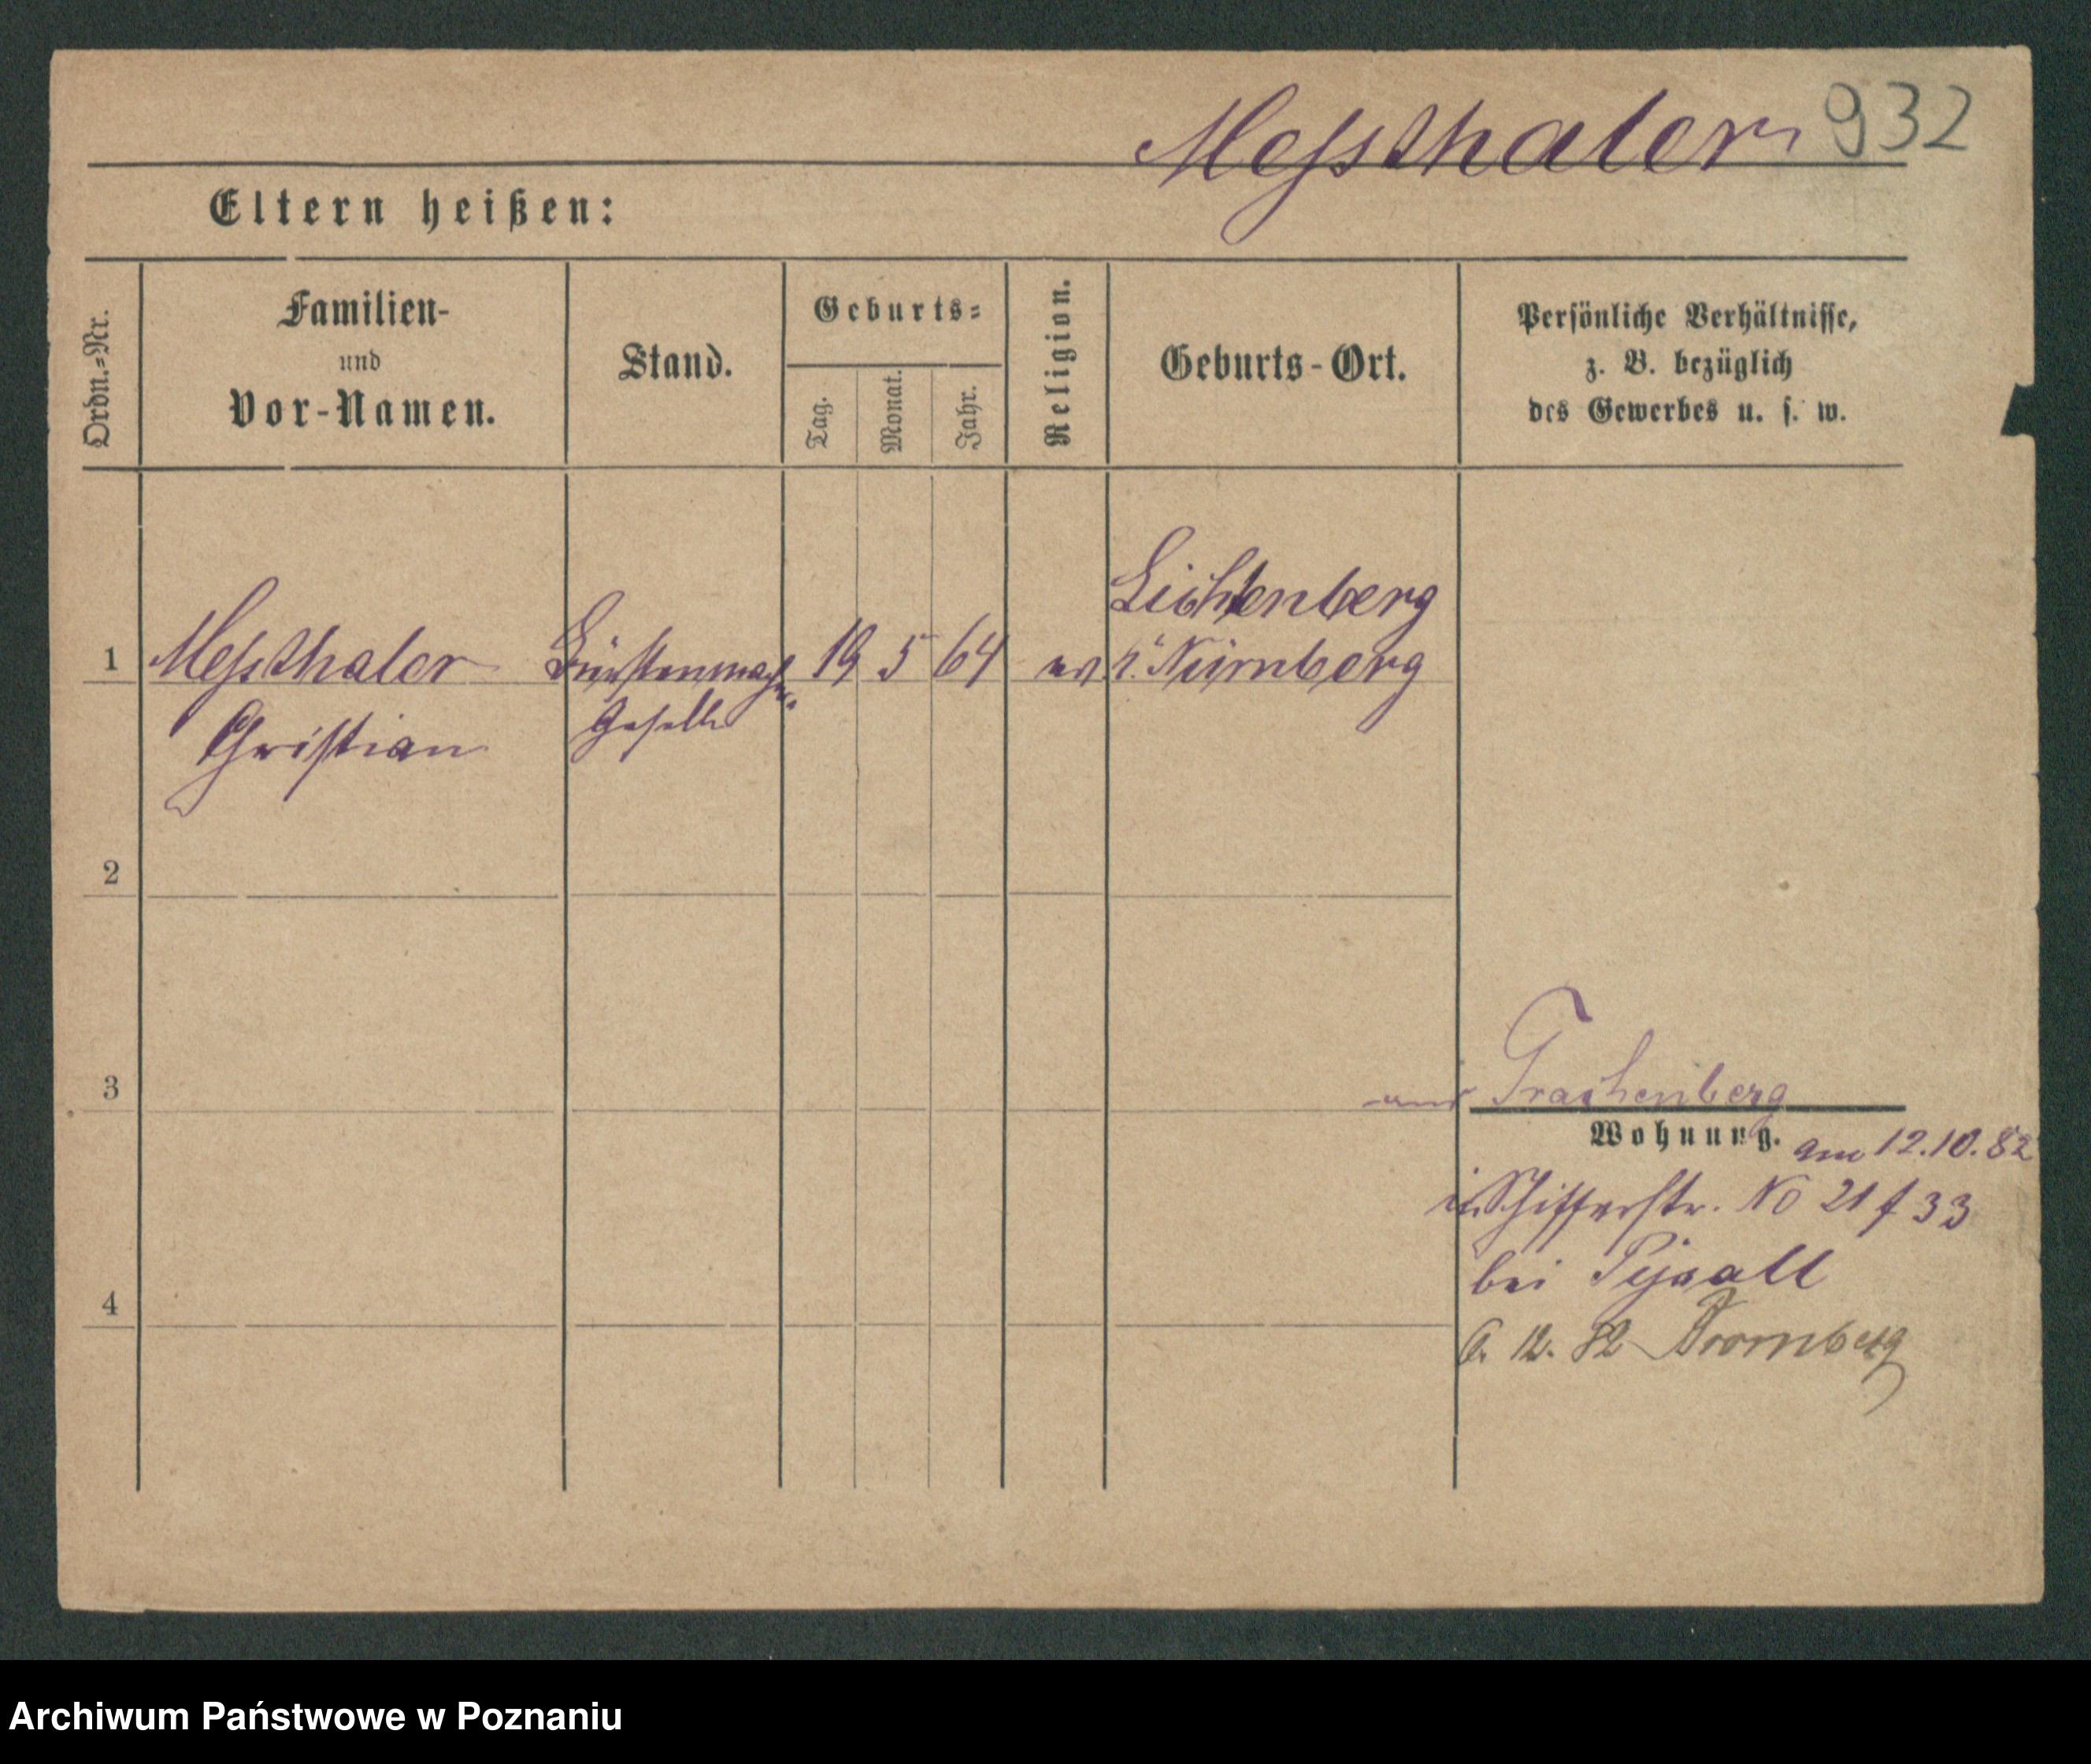 Messthaler 932
Eltern heißen:
Ordn.=Nr.
Familien-
und
Vor-Namen.
Stand.
Geburts=
Tag.
Monat.
Jahr.
Religion.
Geburts-Ort.
Persönliche Verhältnisse,
z. B. bezüglich
des Gewerbes u. s. w.
Lichtenberg
1 Messthaler Bürstenmacher 19 5 64 ev. Nürnberg
Christian Geselle
2
3
aus Trachenberg
Wohnung. am 12.10.82
Schifferstr. No 21 f 33
bei
4
6. 12. 82 Bromberg
Archiwum Państwowe w Poznaniu